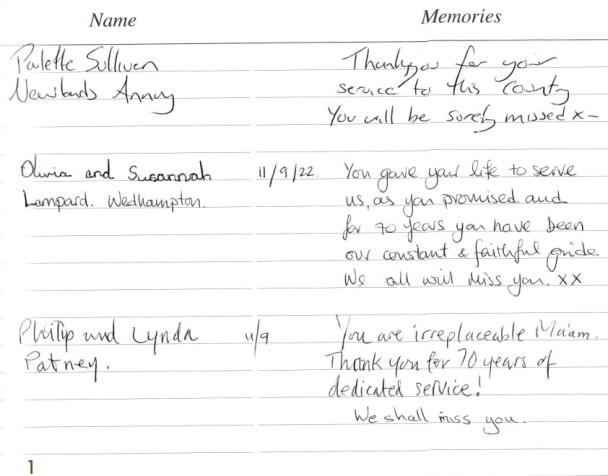 Name Memories
Palette Sullivan Thankyou for your
Newlands Annuy service to this county
You will be sorely missed x
Olivia and Susannah 11/9/22. You gave your life to serve
Lampard. Wedhampton. us, as you promised and
for 70 years you have been
our constant & faithful guide.
We all will miss you. xx
Philip and Lynda 11/9 You are irreplaceable Ma'am.
Patney. Thank you for 70 years of
dedicated service!
We shall miss you.
1